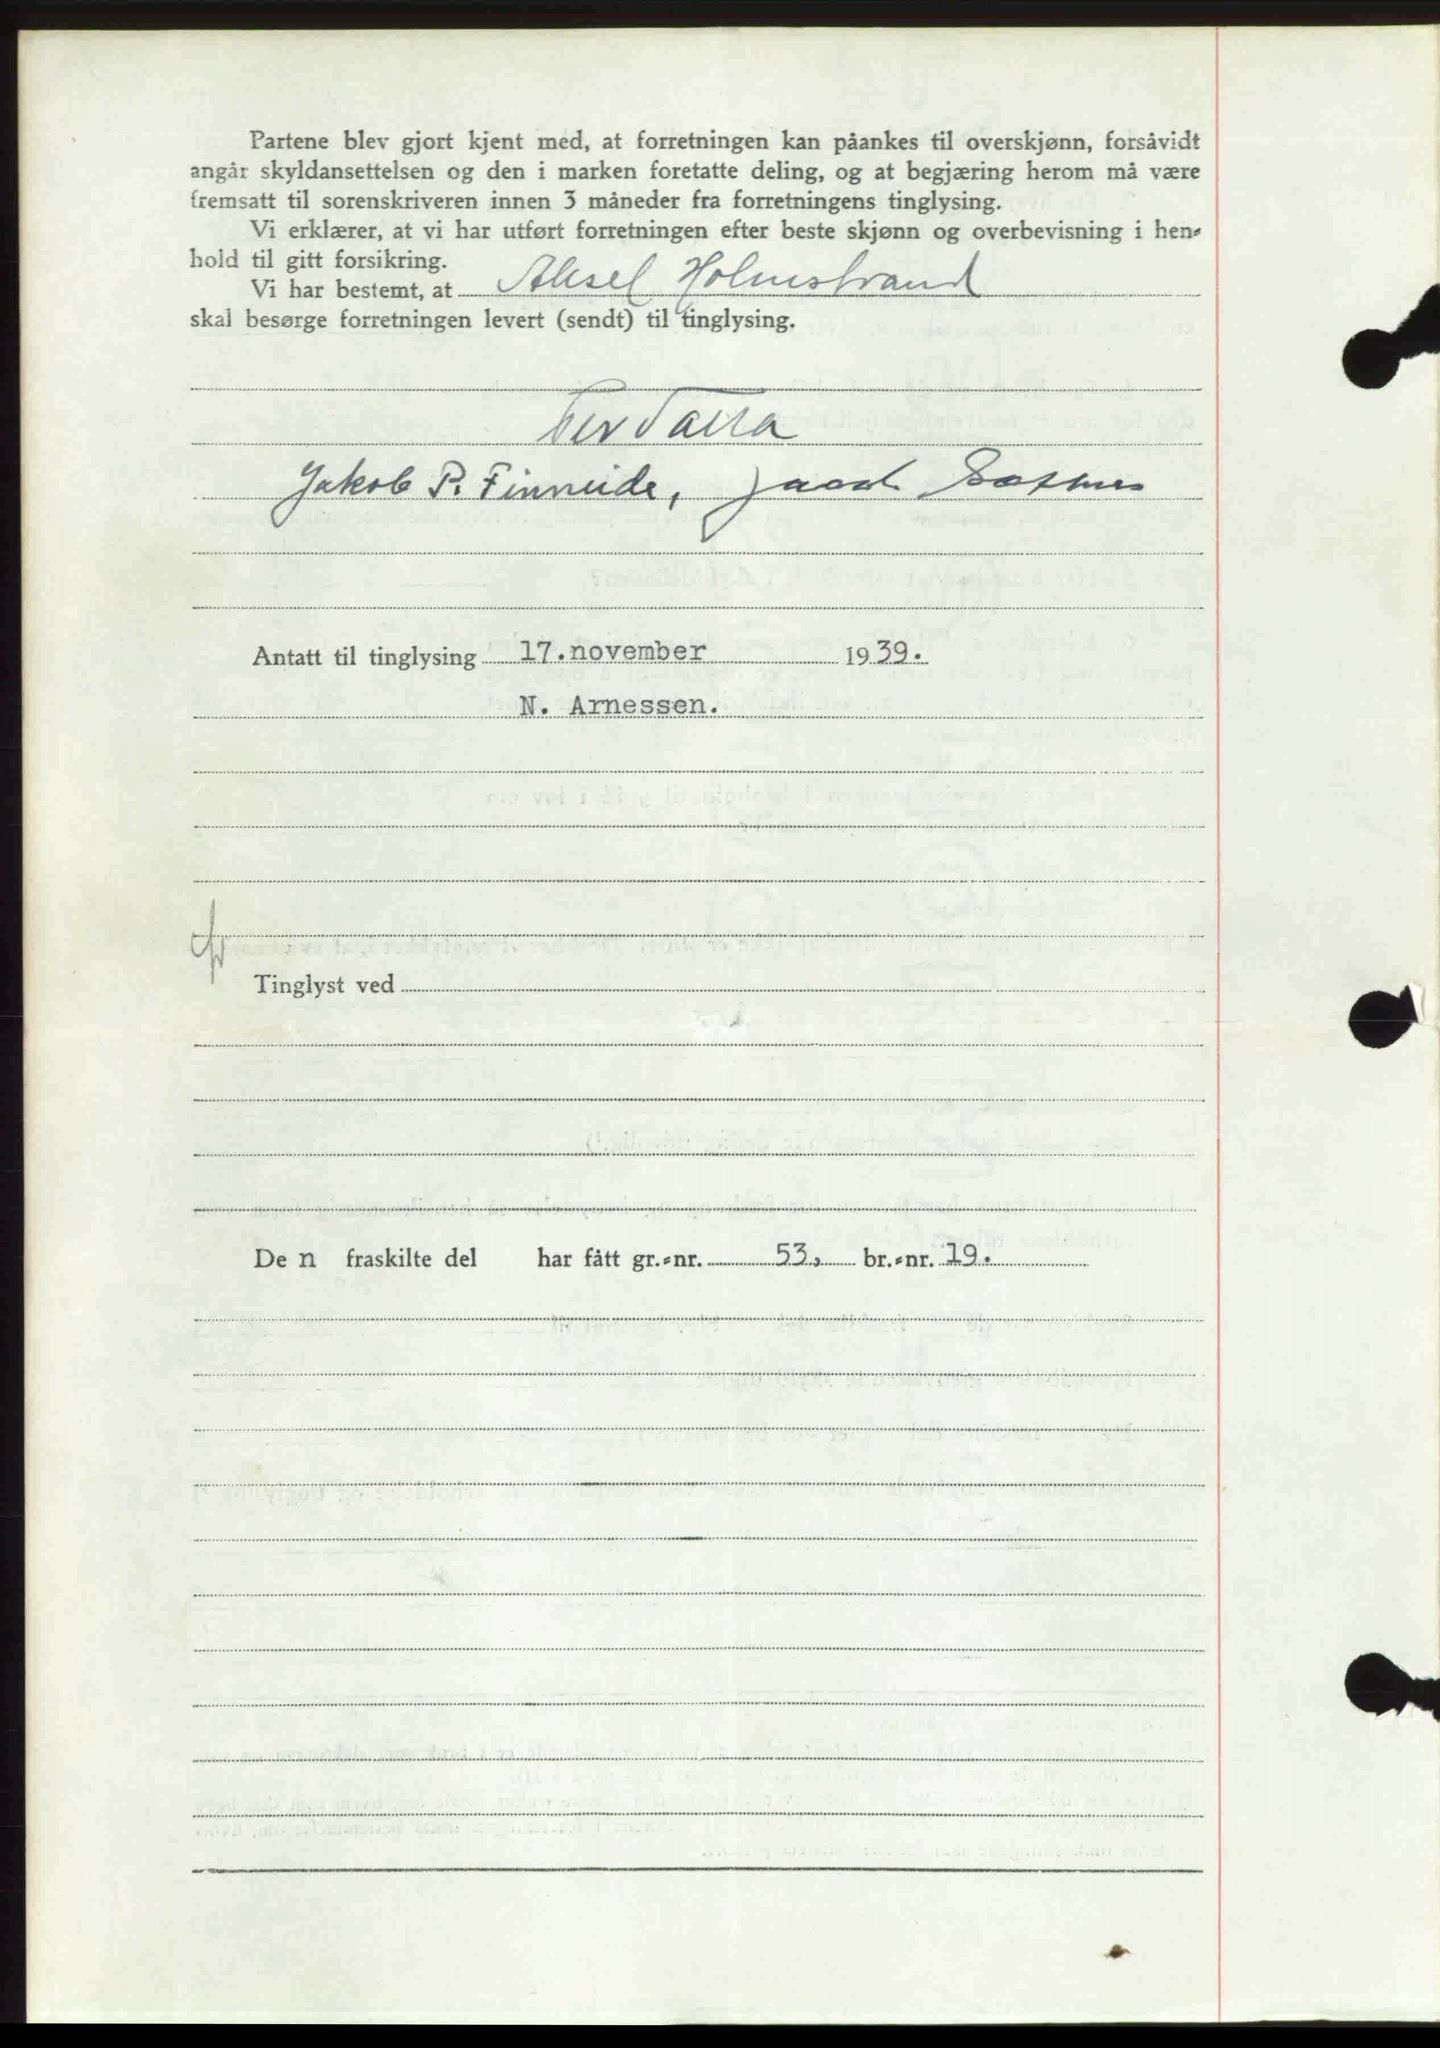 Partene blev gjort kjent med, at forretningen kan påankes til overskjønn, forsåvidt
angår skyldansettelsen og den i marken foretatte deling, og at begjæring herom må være
fremsatt til sorenskriveren innen 3 måneder fra forretningens tinglysing.
Vi erklærer, at vi har utført forretningen efter beste skjønn og overbevisning i hen-
hold til gitt forsikring.
Vi har bestemt, at Aksel Holmstrand
skal besørge forretningen levert (sendt) til tinglysing.
Jakob P. Finneide,
Antatt til tinglysing 17. november 1939.
N. Arnessen.
Tinglyst ved
Den fraskilte del har fått gr.-nr. 53, br.-nr. 19.